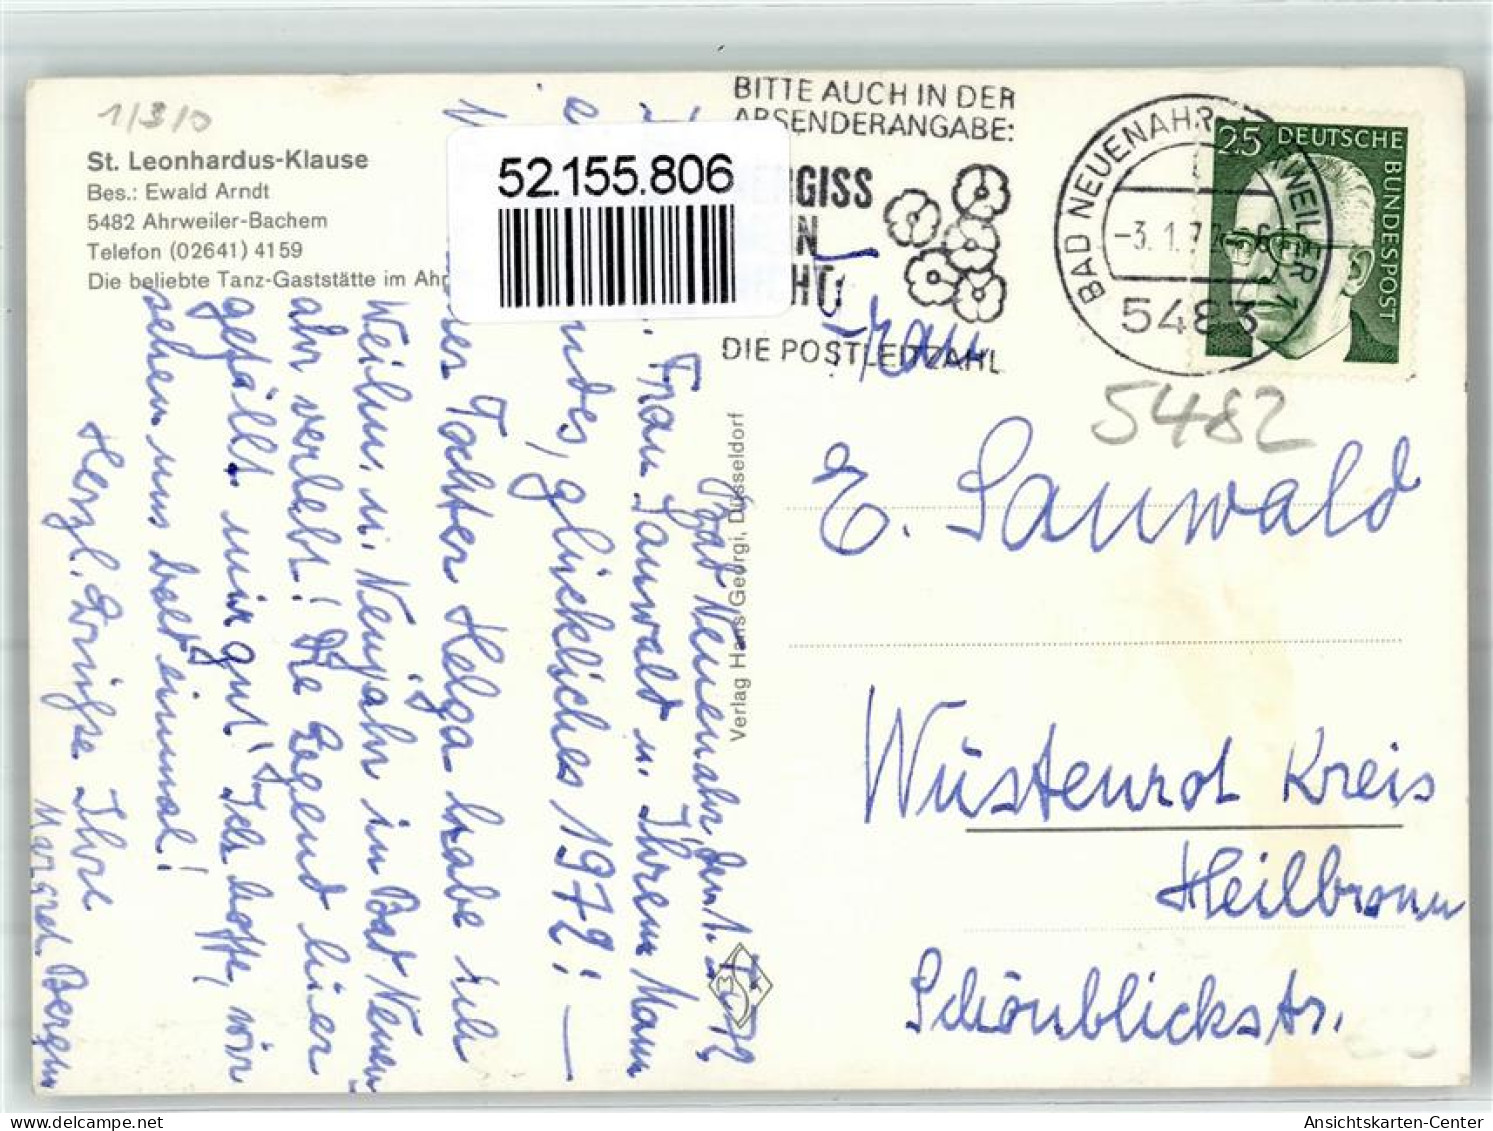 1/3/0
St. Leonhardus-Klause
Bes.: Ewald Arndt
5482 Ahrweiler-Bachem
Telefon (02641) 4159
Die beliebte Tanz-Gaststätte im Ahr
52.155.806
BITTE AUCH IN DER
ABSENDERANGABE:
GISS
N
HT
DIE POSTLEITZAHL
BAD NEUENAHR-AHRWEILER 1
-3. 1. 7
5483
25 DEUTSCHE BUNDESPOST
5482
Verlag Hans Georgi, Düsseldorf
Bad Neuenahr, den 1. 1. 72
Frau Sanwald u. Ihrem Mann
glückliches 1972! —
Tochter Helga habe ich
Weihn. u. Neujahr in Bad Neuen-
ahr verlebt! Die Gegend hier
gefällt mir gut! Ich hoffe, wir
sehen uns bald einmal!
Herzl. Grüße Ihre
Margret
Frau
E. Sanwald
Wüstenrot Kreis
Heilbronn
Schönblickstr.
Ansichtskarten-Center